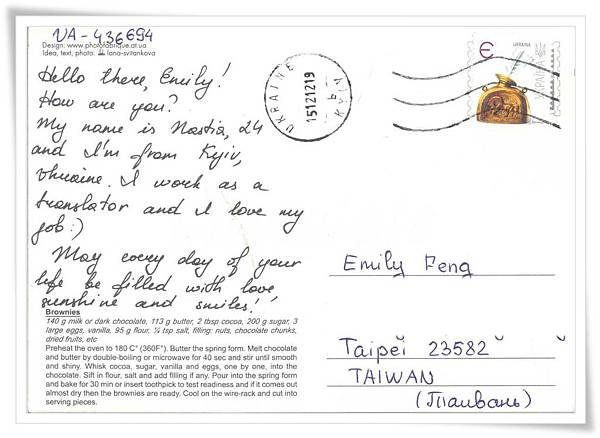 UA-436694
Design: www.photofabrique.at.ua
Idea, text, photo: lana-svitankova
Hello there, Emily!
How are you?
My name is Nastia, 24
and I'm from Kyiv,
Ukraine. I work as a
translator and I love my
job:)
May every day of your
life be filled with love,
sunshine and smiles!
Brownies
140 g milk or dark chocolate, 113 g butter, 2 tbsp cocoa, 200 g sugar, 3
large eggs, vanilla, 95 g flour, ¼ tsp salt, filling: nuts, chocolate chunks,
dried fruits, etc
Preheat the oven to 180 C° (360F°). Butter the spring form. Melt chocolate
and butter by double-boiling or microwave for 40 sec and stir until smooth
and shiny. Whisk cocoa, sugar, vanilla and eggs, one by one, into the
chocolate. Sift in flour, salt and add filling if any. Pour into the spring form
and bake for 30 min or insert toothpick to test readiness and if it comes out
almost dry then the brownies are ready. Cool on the wire-rack and cut into
serving pieces.
UKRAINE
15121219
КИЇВ
Є
UKRAINA
УКРАЇНА
Emily Feng
Taipei 23582
TAIWAN
(Таивань)